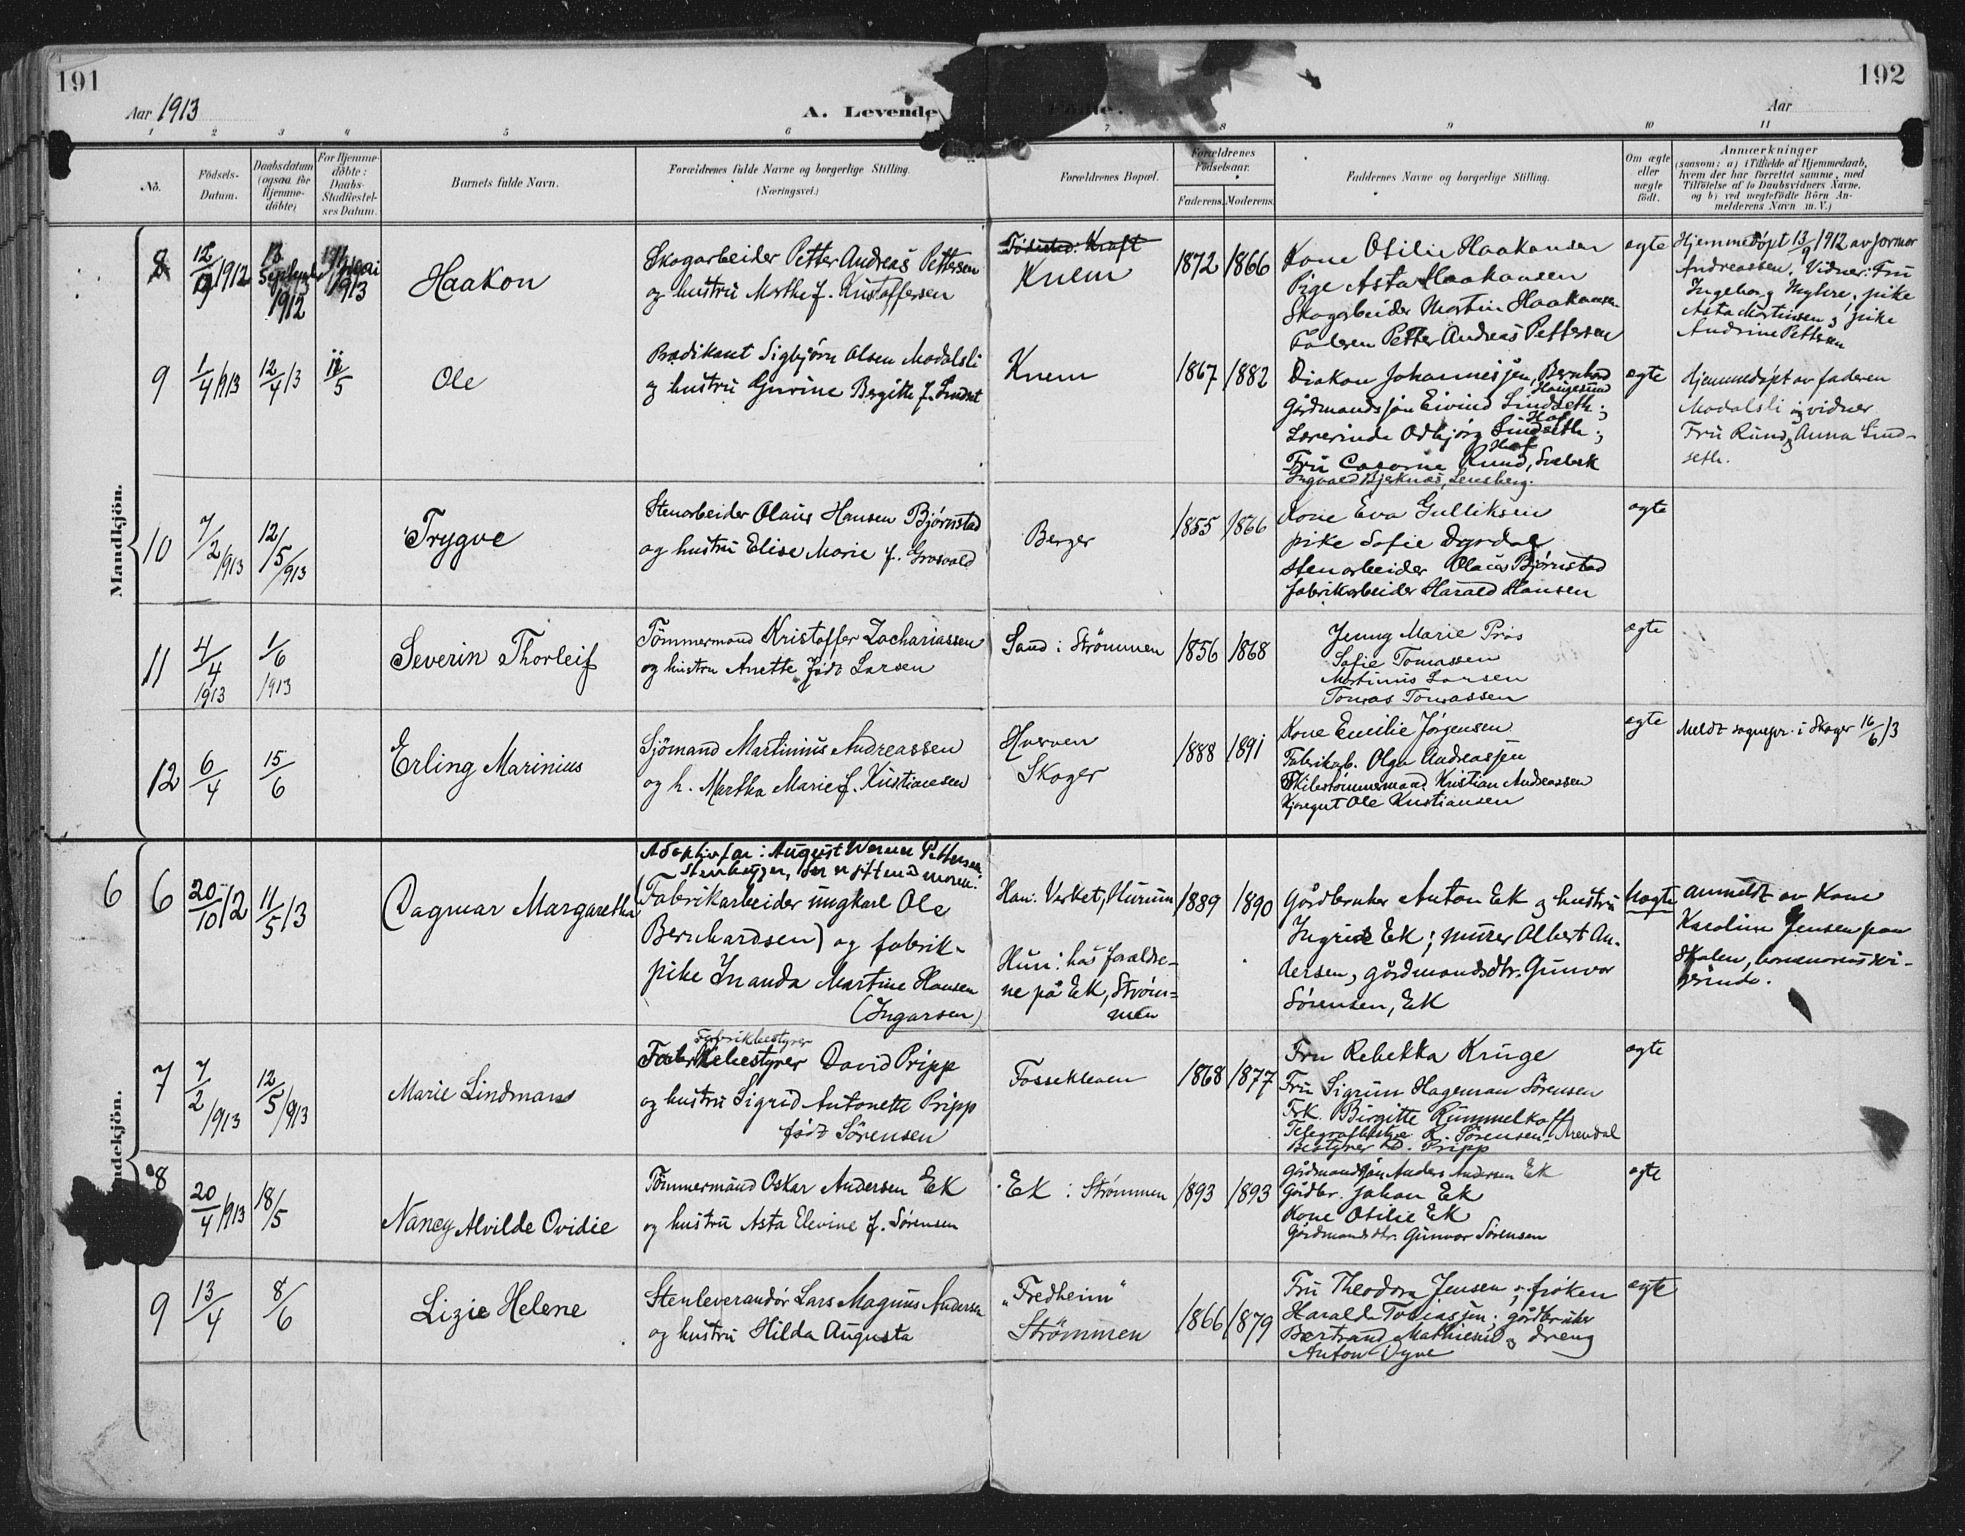 191
192
Aar 1913
A. Levende
Aar
1 2 3 4 5 6 7 8 9 10 11
No.
Födsels-
Datum.
Daabsdatum
(ogsaa for
Hjemme-
döbte)
For Hjemme-
döbte:
Daabs-
Stadfæstel-
ses Datum.
Barnets fulde Navn.
Forældrenes fulde Navne og borgerlige Stilling.
(Næringsvei.)
Forældrenes Bopæl.
Forældrenes
Födselsaar.
Faderens. Moderens.
Faddernes Navne og borgerlige Stilling.
Om ægte
eller
uægte
født.
Anmærkninger
(saasom: a) i Tilfælde af Hjemmedaab,
hvem der har forrettet samme, med
Tilföielse af to Daabsvidners Navne,
og b) ved uegtefödte Börn An-
melderens Navn m. V.)
Mandkjön.
8
12/9 1912
13
September
1912
mai
1913
Haakon
Skogarbeider Petter Andreas Pettersen
og hustru Marthe f. Kristoffersen
Knem
1872 1866
Kone Otilie Haakonsen
Pige Asta Haakonsen
Skogarbeider Martin Haakonsen
Faderen Petter Andreas Pettersen
ægte
Hjemmedøpt 13/9 1912 av jormor
Andreassen. Vidner: Fru
Ingeborg Myhre, pike
Asta Mortensen og pike
Andrine Pettersen
9
1/4 1913
12/4 13
11/5
Ole
Prædikant Sigbjørn Olsen Modalsli
og hustru Gurine Bergitte f. Lindset
Knem
1867 1882
Diakon Johannesjen, Bernhard
Haugesund
Gårdmandssøn Eivind Lindseth;
Hof
Lærerinde Odbjørg Lindseth;
Hof
Fru Rund, Svelvik
Ingvald Bjerknæs,
ægte
Hjemmedøpt av faderen
Modalsli og vidner
Fru Rund og Anna Lind-
seth.
10
7/2 1913
12/5 1913
Trygve
Stenarbeider Olaus Hansen Bjørnstad
og hustru Elise Marie f. Grosvold
Berger
1855 1866
Kone Eva Gulliksen
pike Sofie Dyrdal
stenarbeider Olaus Bjørnstad
fabrikarbeider Harald Hansen
ægte
11
4/4 1913
1/6 1913
Severin Thorleif
Tömmermand Kristoffer Zachariassen
og hustru Anette født Larsen
Sand i Strømmen
1856 1868
Jenny Marie Præs
Sofie Tomassen
Martinus Larsen
Tomas Tomassen
ægte
12
6/4
15/6
Erling Marinius
Sjömand Martinius Andreassen
og h. Martha Marie f. Kristiansen
Hverven
Skoger
1888 1891
Kone Emilie Jørgensen
Fabrikarb. Olga Andreassen
Skibstømmermand Kristian Andreassen
Kjøregut Ole Kristiansen
ægte
Meldt sognepr. i Skoger 16/6 13
6 6
20/10 12
11/5 13
Dagmar Margaretha
Adoptivfar: August Werner Pettersen
Stenhugger, der er gift med moren.
(Fabrikarbeider ungkarl Ole
Bernhardsen) og fabrik-
pike Inanda Martine Hansen
(Ingarsen)
Han: Verket, Hurum
Hun: hos forældre-
ne på Ek, Strøm-
men
1889 1890
Gårdbruker Anton Ek og hustru
Ingrid Ek; murer Albert An-
dersen, gårdmandsdtr. Gunvor
Sørensen, Ek
Uægte
anmeldt av Kone
Karoline Jensen paa
Skolen,
7
7/2 1913
12/5 1913
Marie Lindman
Fabrikbestyrer
Fabrikbestyrer David Pripp
og hustru Sigrid Antonette Pripp
født Sörensen
Fossekleven
1868 1877
Fru Rebekka Kruge
Fru Sigrun Hageman Sørensen
Frk. Birgitte Rummelhoff
Telegrafbestyr R. Sørensen, Arendal
Bestyrer D. Pripp
ægte
8
20/4 1913
18/5
Nancy Alvilde Ovidie
Tömmermand Oskar Andersen Ek
og hustru Asta Elevine f. Sørensen
Ek i Strømmen
1893 1893
Gårdmandssøn Anders Andersen Ek
Gårdbr. Johan Ek
Kone Otilie Ek
Gårdmandsdtr. Gunvor Sørensen
ægte
9
13/4
8/6
Lizie Helene
Stenleverandör Lars Magnus Andersen
og hustru Hilda Augusta
„Fredheim"
Strømmen
1866 1879
Fru Theodora Jensen; frøken
Haralda Tobiassen; gårdbruker
Bertrand Mathiesen og dreng
Anton Dyve
ægte